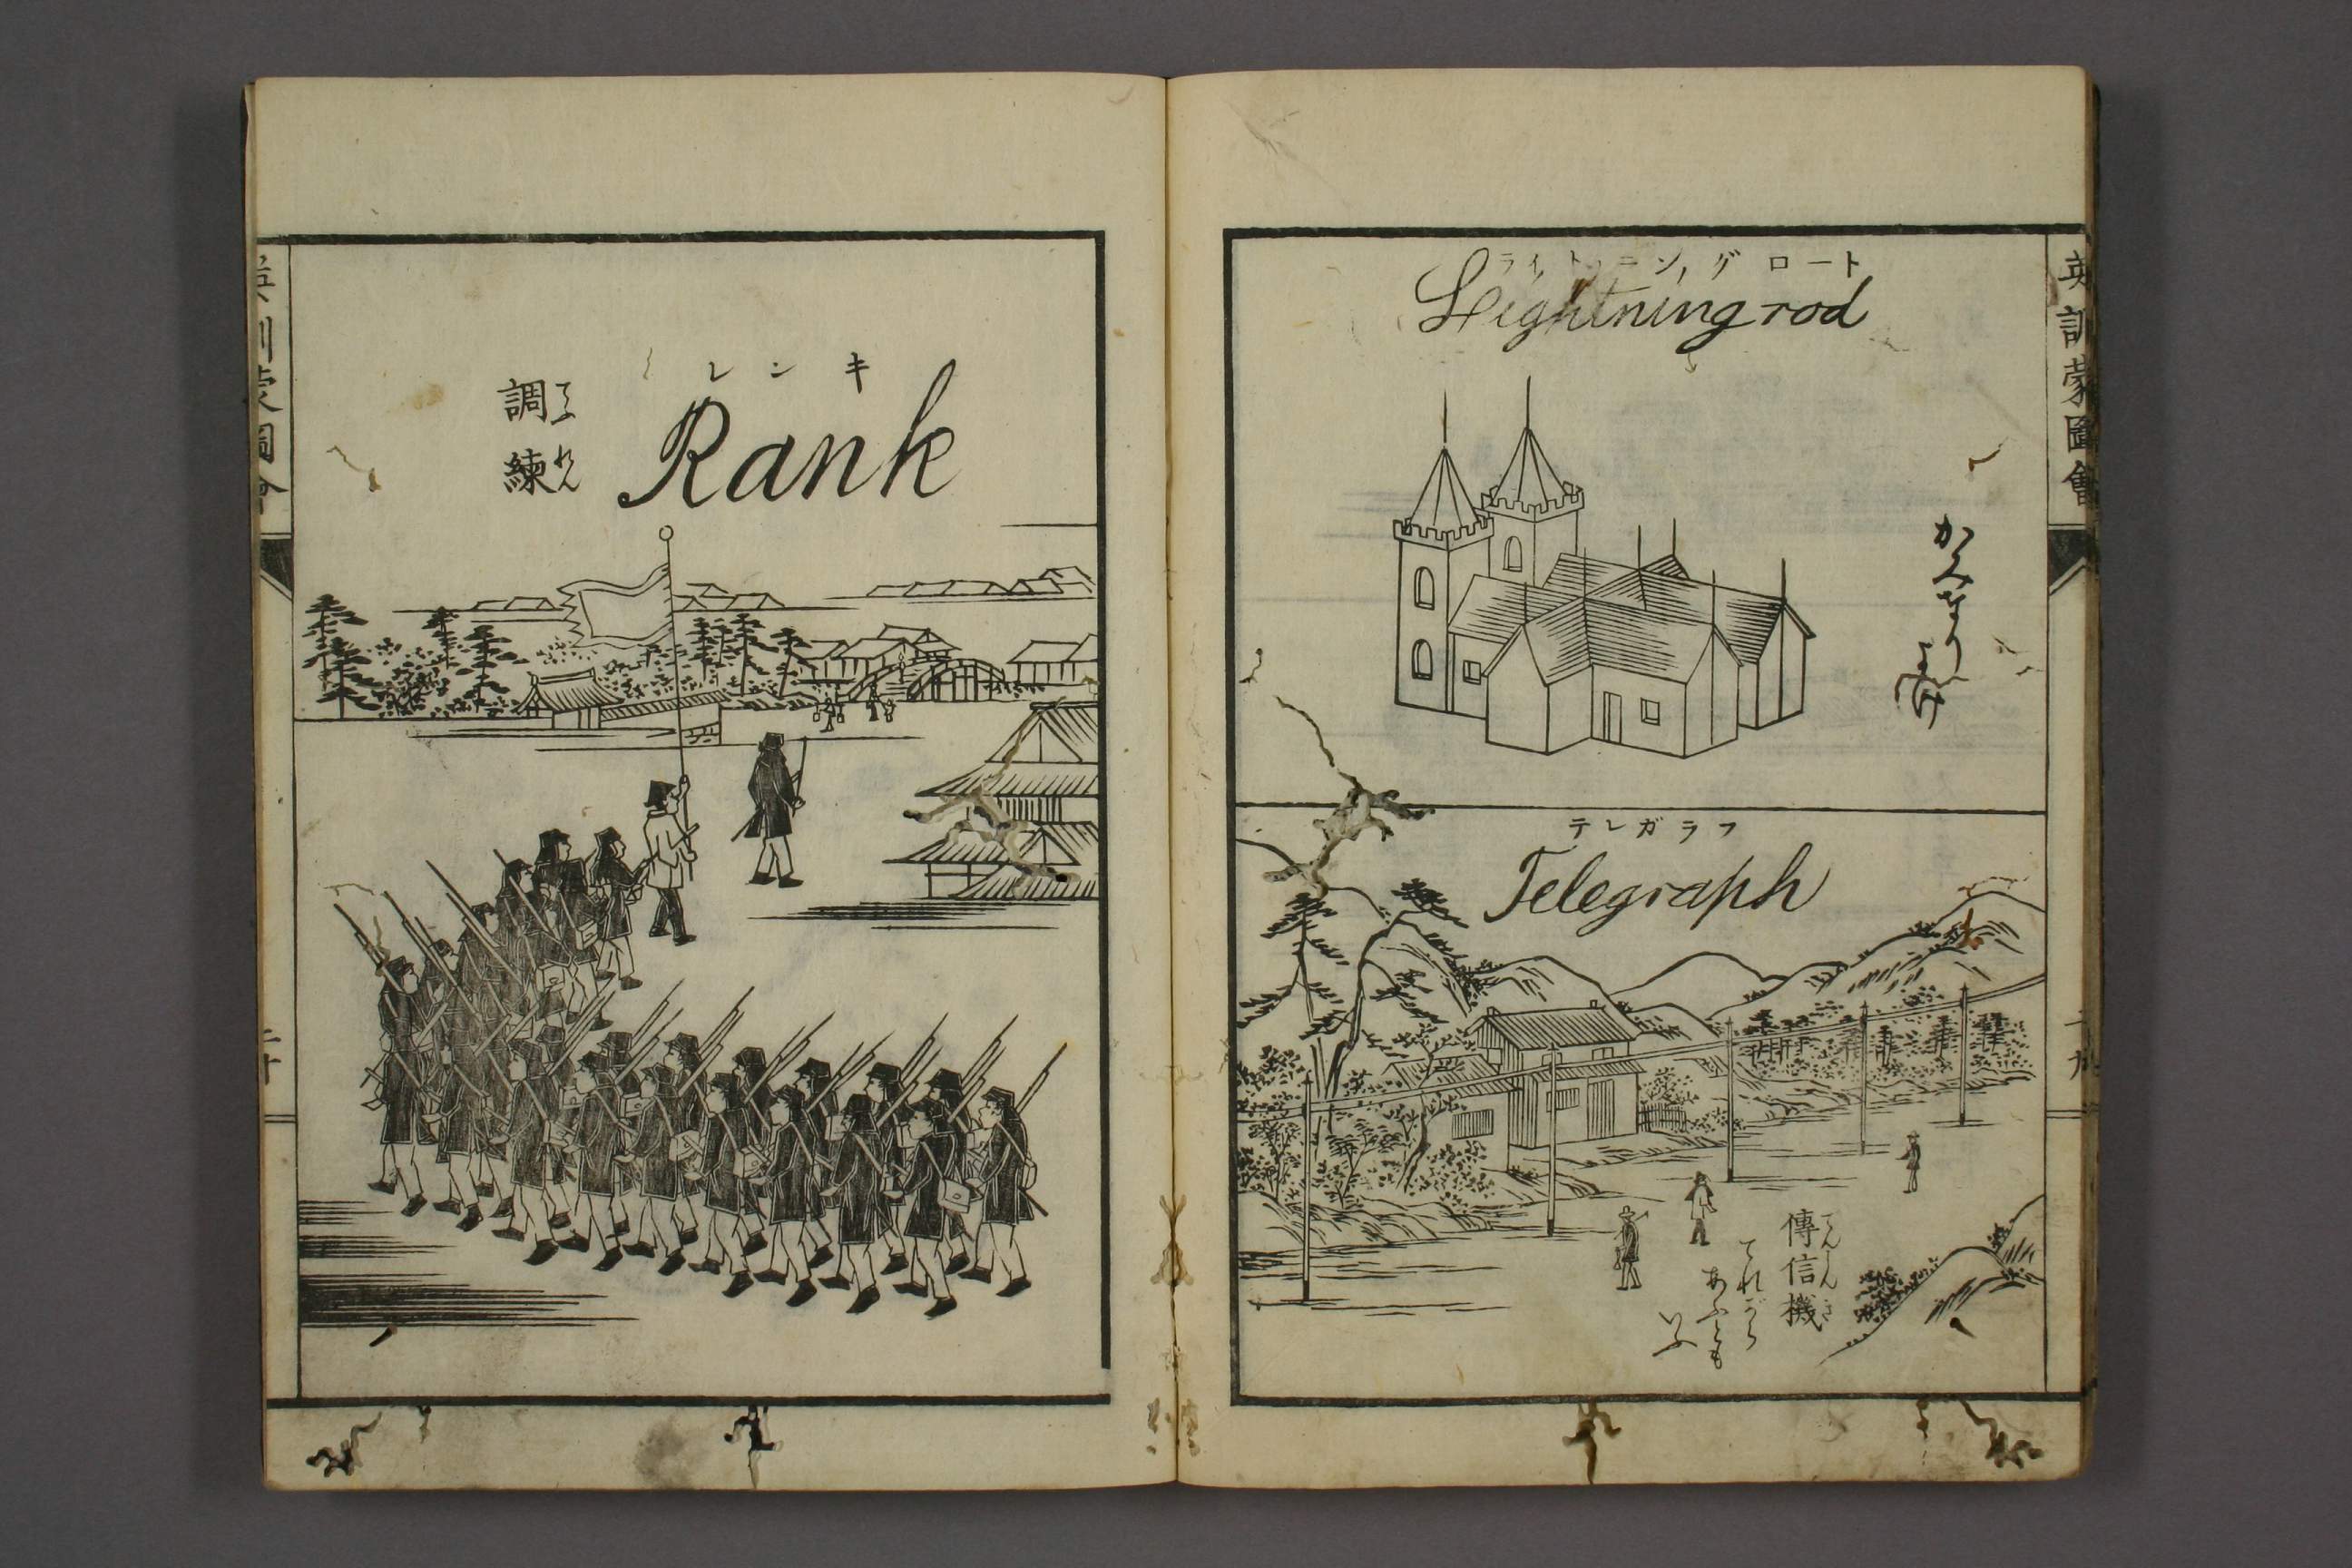 英訓蒙圖會
ライトニング ロート
Lightning rod
かみなりよけ
テレガラフ
Telegraph
傳信機
てんしんき
てれがら
あふとも
いふ
二十九
レンキ
Rank
調練
てうれん
英訓蒙圖會
三十